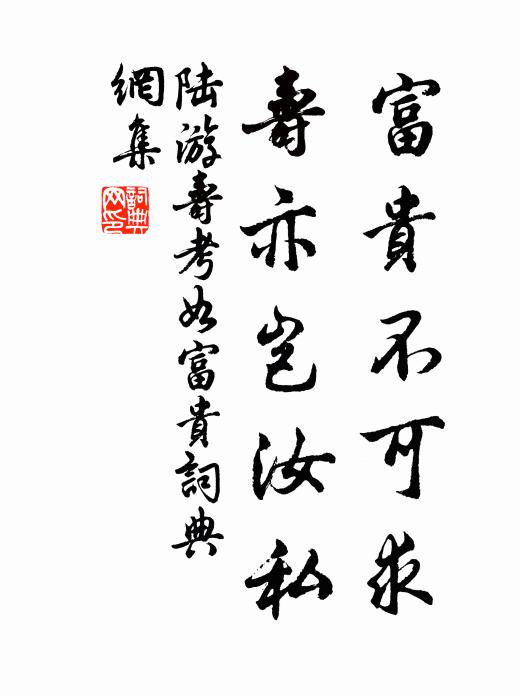 富貴不可求
壽亦豈汝私
陆游壽考如富貴詞典
網集
詞典网印